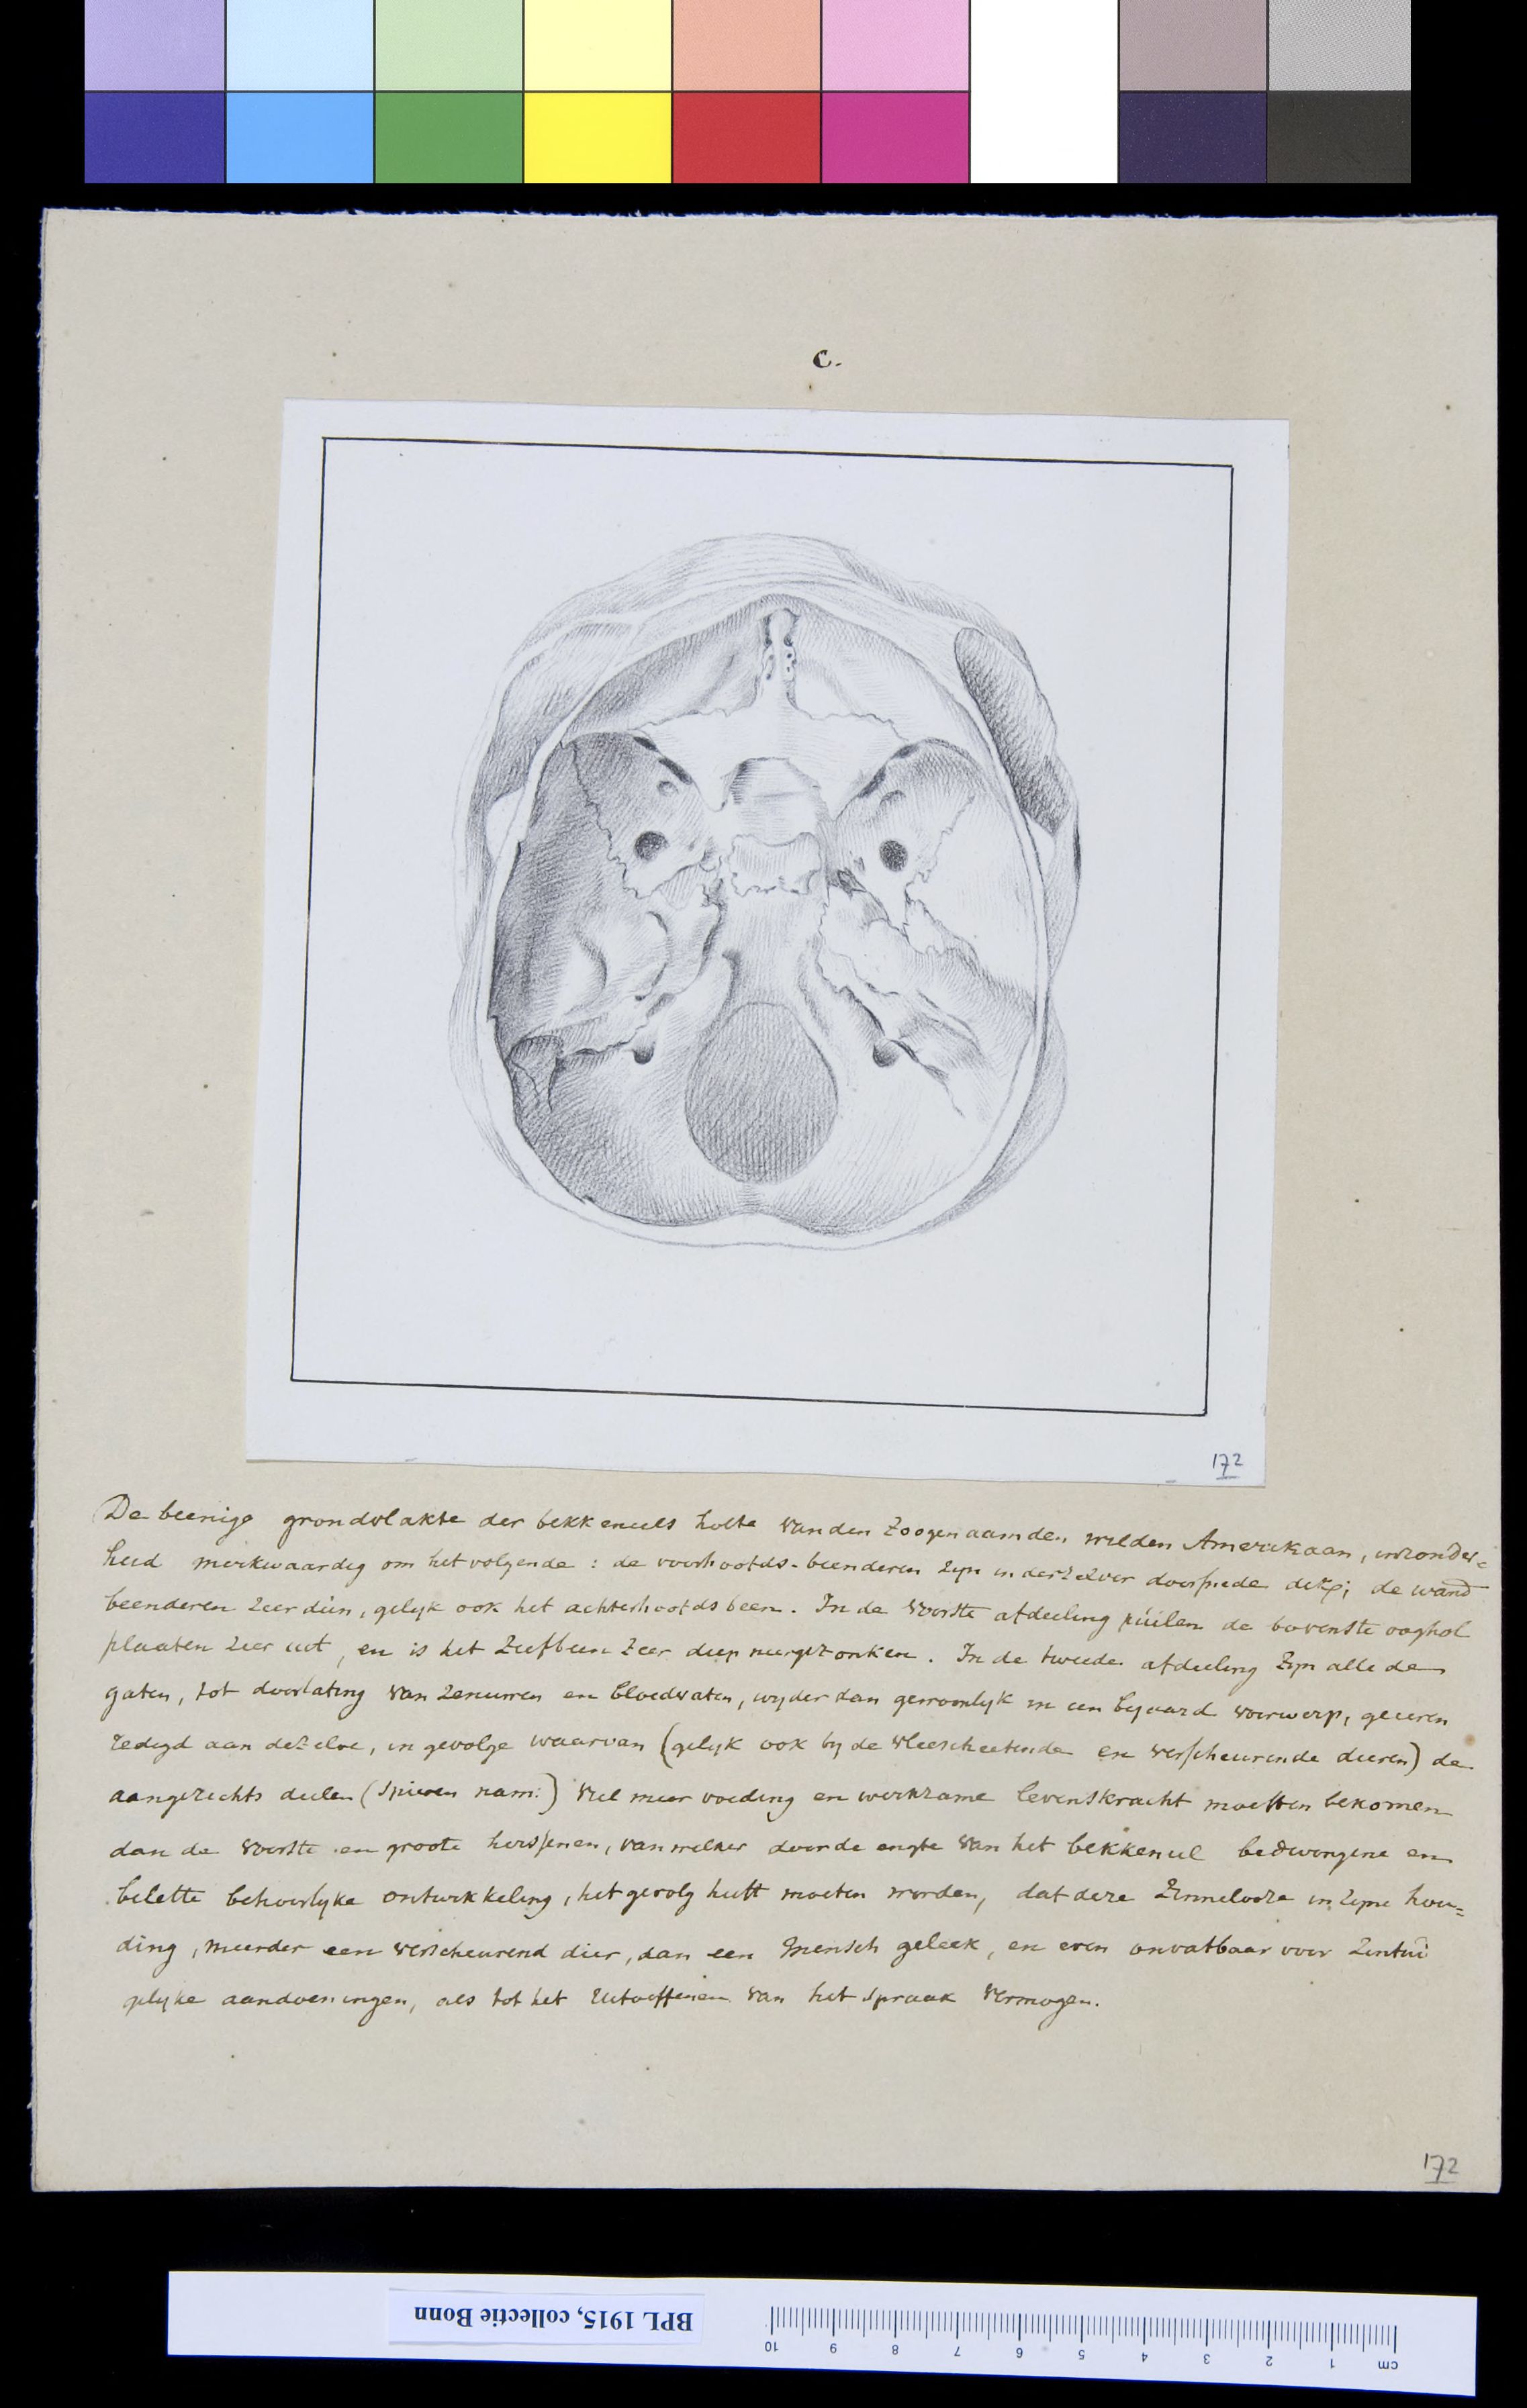 C.
172
De beenige grondvlakte der bekkeneels holte van den Zoogenaamden wilden Amerikaan, inzonder=
heid merkwaardig om het volgende: de voorhoofds-beenderen zyn in derzelver doorsnede dik; de wand
beenderen zeer dun, gelyk ook het achterhoofds been. In de voorste afdeeling puilen de bovenste ooghol
plaaten zeer uit, en is het Zeefbeen zeer diep neergezonken. In de tweede afdeeling zyn alle de
gaten, tot doorlating van Zenuwen en bloedvaten, wyder dan gewoonlyk in een bejaard voorwerp, geëven
redigd aan dezelve, in gevolge waarvan (gelyk ook by de vleeschetende en verscheurende dieren) de
aangezichts deelen (spieren nam:) veel meer voeding en werkzame levenskracht moesten bekomen
dan de voorste en groote hersenen, van welker door de engte van het bekkeneel bedwongene en
belette behoorlyke ontwikkeling, het gevolg heeft moeten worden, dat deze Zinneloze in zyne hou=
ding, meerder een verscheurend dier, dan een Mensch geleek, en even onvatbaar voor Zintui
gelyke aandoeningen, als tot het uitoeffenen van het spraak vermogen.
172
BPL 1915, collectie Bonn
10 9 8 7 6 5 4 3 2 1 cm